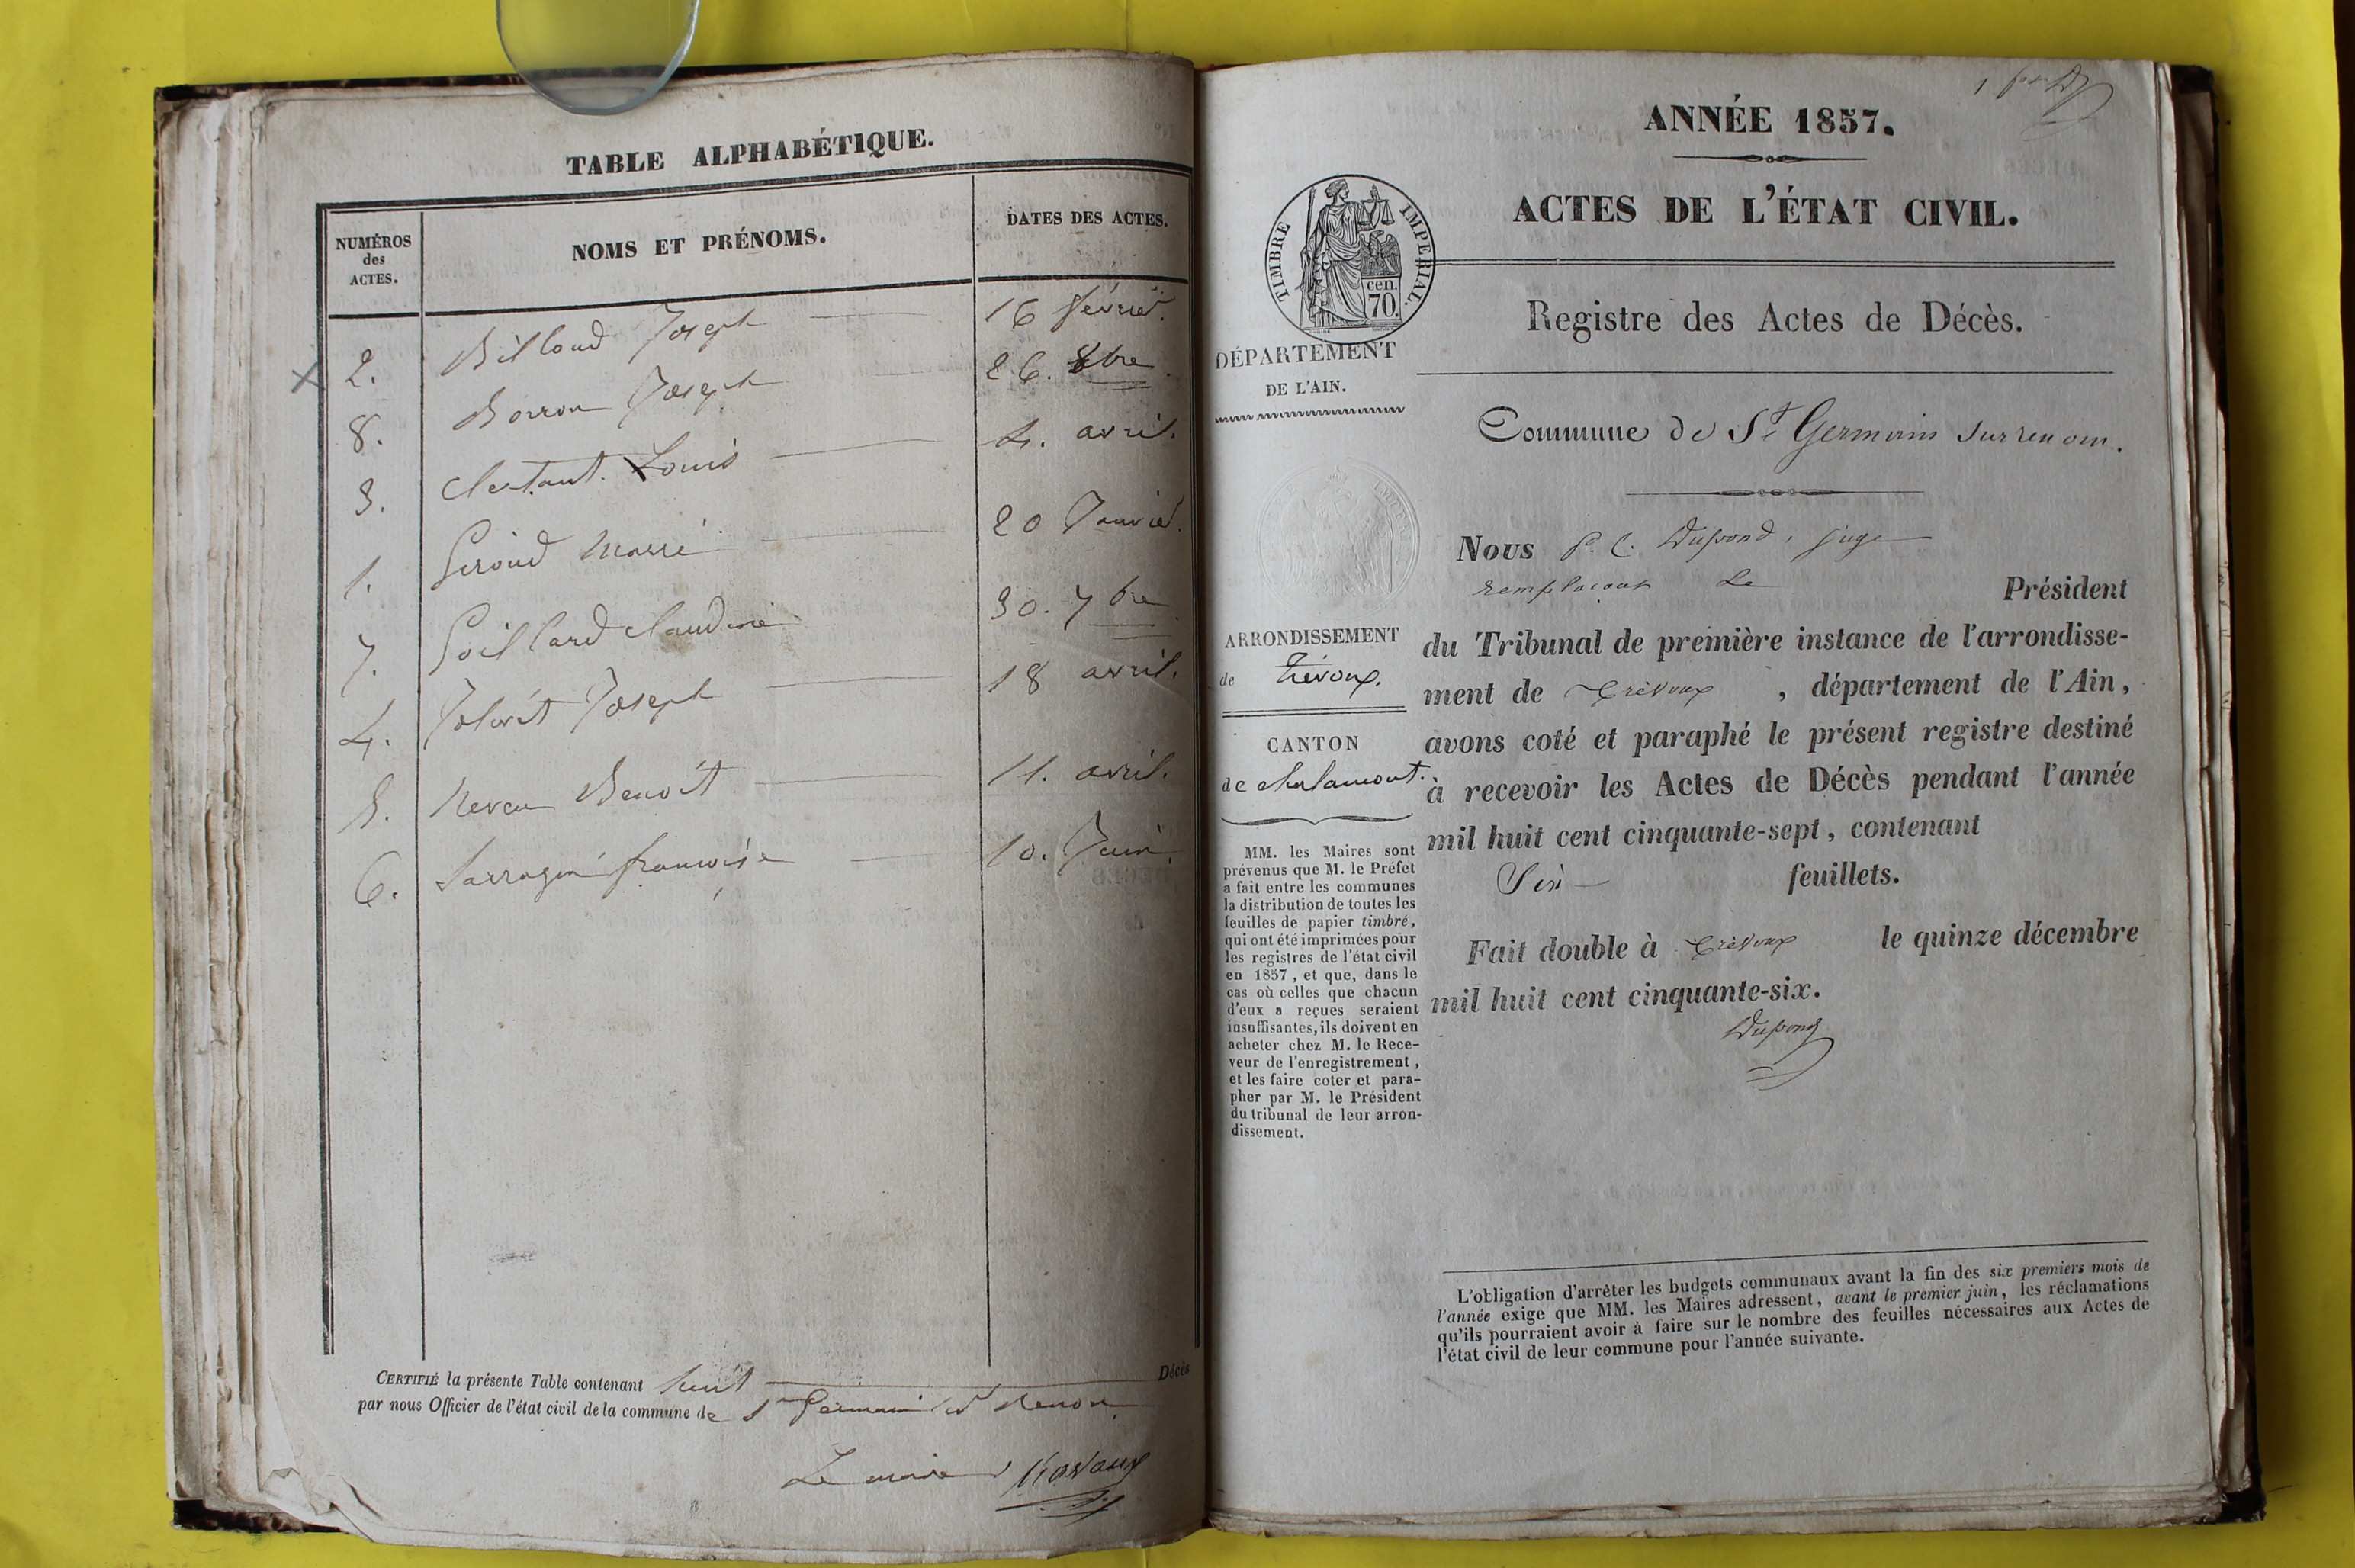 TABLE ALPHABÉTIQUE.
NUMÉROS des ACTES.
NOMS ET PRÉNOMS.
DATES DES ACTES.
2. Billoud Joseph 16 février.
8. Borron Joseph 26. 8bre.
3. Clertant. Louis 4. avril.
1. Giroud Marie 20 Janvier.
7. Goillard Claudine 30. 7bre
4. Joseph 18 avril.
5. Neveu Benoît 11. avril.
6. françoise 10. Juin.
CERTIFIÉ la présente Table contenant huit Décès
par nous Officier de l'état civil de la commune de St Germain sur Renon
Le maire
ANNÉE 1857.
ACTES DE L'ÉTAT CIVIL.
TIMBRE IMPERIAL.
cen.
70.
Registre des Actes de Décès.
DÉPARTEMENT
DE L'AIN.
Commune de St Germain sur renom.
ARRONDISSEMENT
de Trévoux.
CANTON
de chalamont.
MM. les Maires sont
prévenus que M. le Préfet
a fait entre les communes
la distribution de toutes les
feuilles de papier timbré,
qui ont été imprimées pour
les registres de l'état civil
en 1857, et que, dans le
cas où celles que chacun
d'eux a reçues seraient
insuffisantes, ils doivent en
acheter chez M. le Rece-
veur de l'enregistrement,
et les faire coter et para-
pher par M. le Président
du tribunal de leur arron-
dissement.
Nous P. C. Dupond, juge
remplaçant Le Président
du Tribunal de première instance de l'arrondisse-
ment de Trévoux, département de l'Ain,
avons coté et paraphé le présent registre destiné
à recevoir les Actes de Décès pendant l'année
mil huit cent cinquante-sept, contenant
Six feuillets.
Fait double à Trévoux le quinze décembre
mil huit cent cinquante-six.
Dupond
L'obligation d'arrêter les budgets communaux avant la fin des six premiers mois de
l'année exige que MM. les Maires adressent, avant le premier juin, les réclamations
qu'ils pourraient avoir à faire sur le nombre des feuilles nécessaires aux Actes de
l'état civil de leur commune pour l'année suivante.